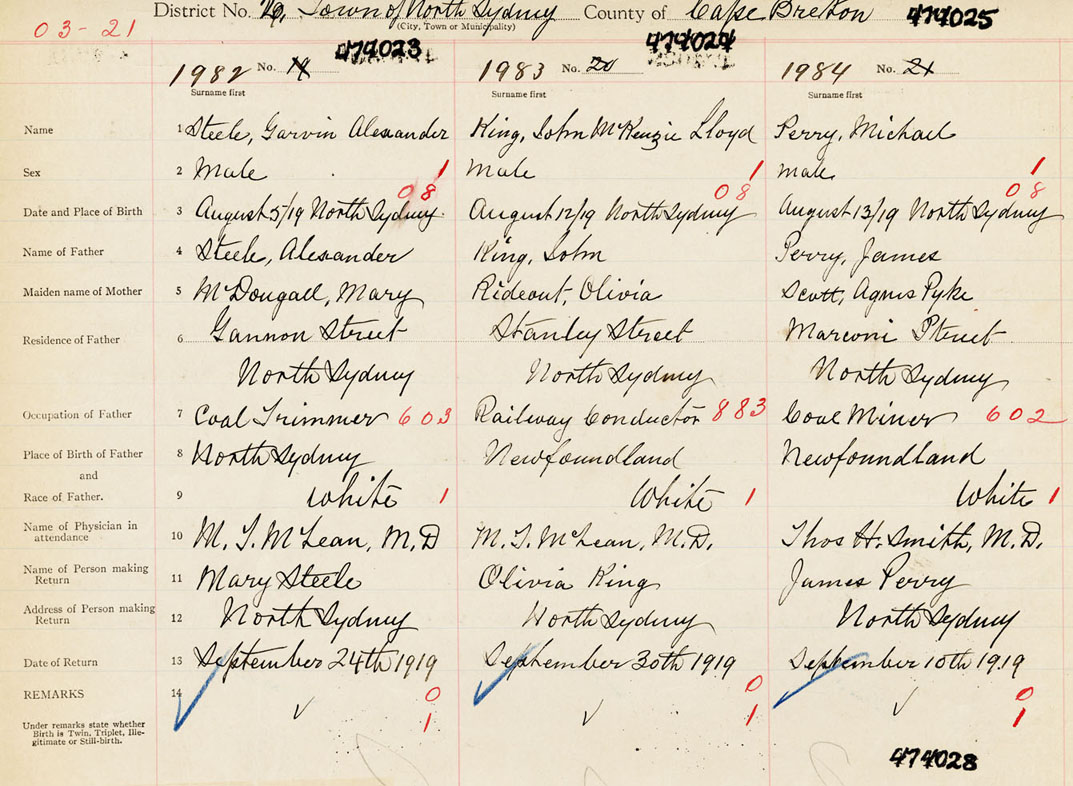 District No. 19, Town of North Sydney County of Cape Breton 474025
(City, Town or Municipality)
03-21
474023 474024
1982 No. 19 1983 No. 20 1984 No. 21
Surname first Surname first Surname first
Name 1 Steele, Garvin Alexander King, John McKenzie Lloyd Perry, Michael
Sex 2 Male 1 Male 1 Male 1
08 08 08
Date and Place of Birth 3 August 5/19 North Sydney. August 12/19 North Sydney August 13/19 North Sydney
Name of Father 4 Steele, Alexander King, John Perry, James
Maiden name of Mother 5 McDougall, Mary Rideout, Olivia Scott, Agnes Pyke
Residence of Father 6 Gannon Street Stanley Street Marconi Street
North Sydney North Sydney North Sydney
Occupation of Father 7 Coal Trimmer 603 Railway Conductor 883 Coal Miner 602
Place of Birth of Father 8 North Sydney Newfoundland Newfoundland
and
Race of Father. 9 White 1 White 1 White 1
Name of Physician in
attendance 10 M. T. McLean, M.D M. T. McLean, M.D. Thos H. Smith, M.D.
Name of Person making
Return 11 Mary Steele Olivia King James Perry
Address of Person making
Return 12 North Sydney North Sydney North Sydney
Date of Return 13 September 24th 1919 September 30th 1919 September 10th 1919
REMARKS 14 0 0 0
Under remarks state whether
Birth is Twin, Triplet, Ille-
gitimate or Still-birth. 1 1 1
474028